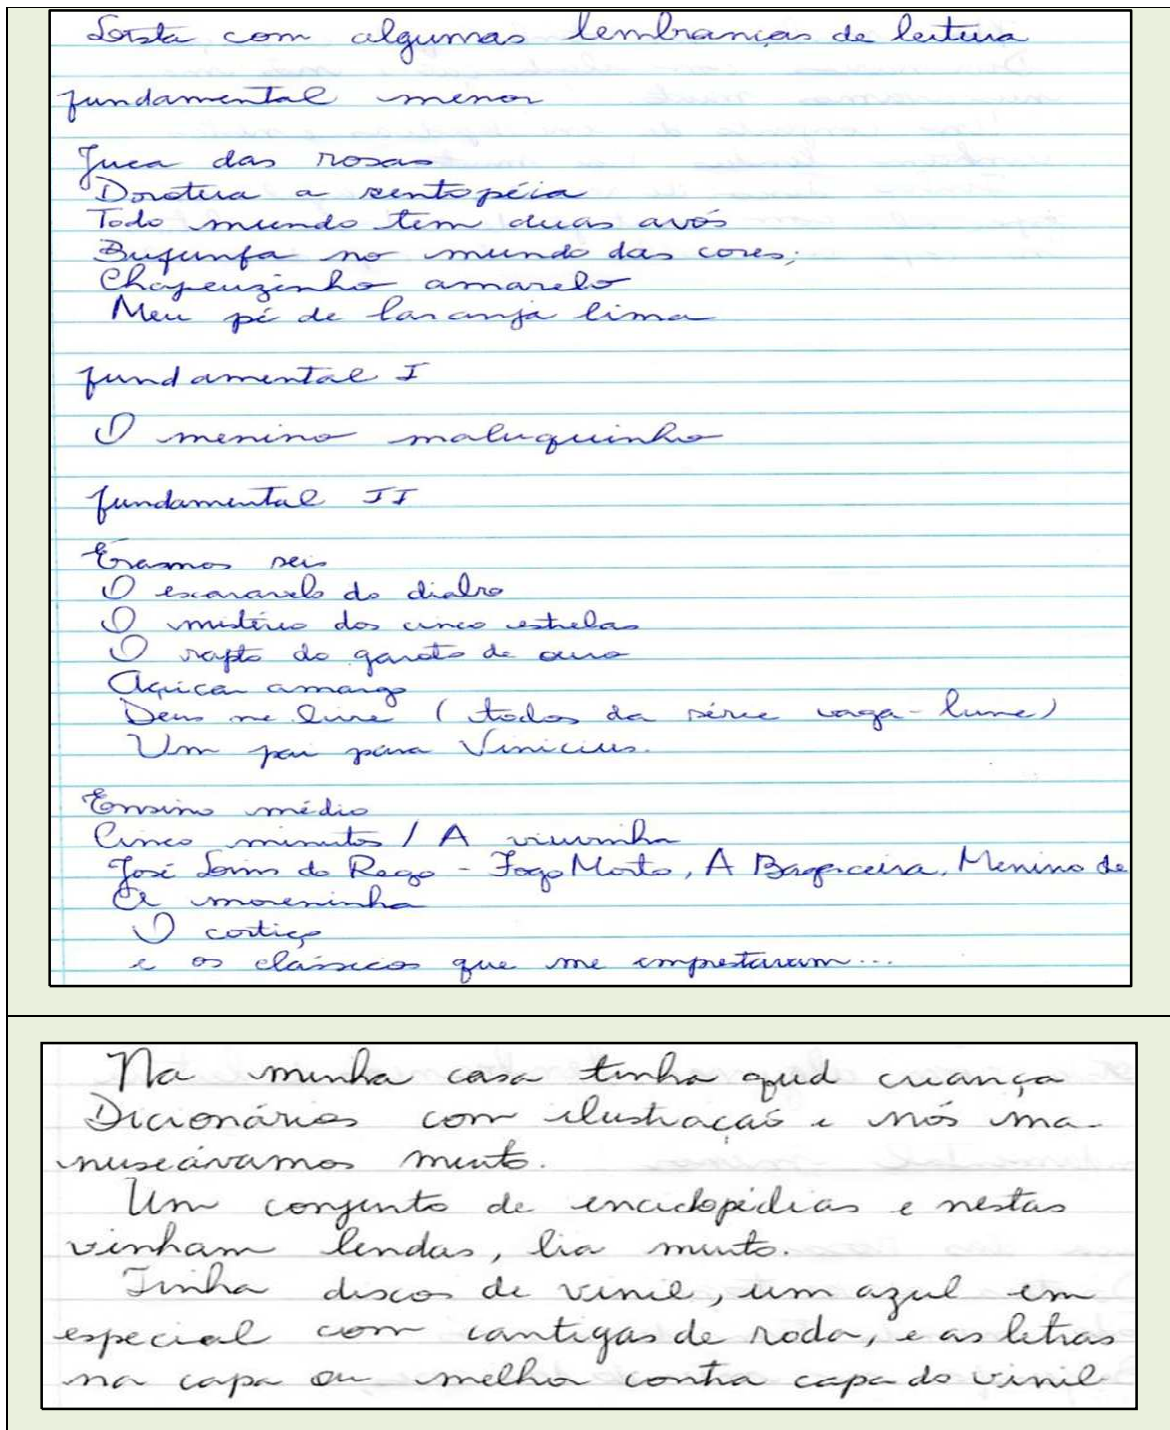 Lista com algumas lembranças de leitura
fundamental menor
Juca das rosas
Dorotéia a sentopéia
Todo mundo tem duas avós
Bufunfa no mundo das cores;
Chapeuzinho amarelo
Meu pé de laranja lima
fundamental I
O menino maluquinho
fundamental II
Éramos seis
O escaravelo do diabro
O mistério dos cinco estrelas
O rapto do garoto de ouro
Açúcar amargo
Deus me livre (todos da série vaga-lume)
Um pai para Vinicius.
Ensino médio
Cinco minutos / A viuvinha
José Lins do Rego - Fogo Morto, A Bagaceira, Menino de
A moreninha
O cortiço
e os clássicos que me emprestavam...
Na minha casa tinha qud criança
Dicionários com ilustração e nós ma-
nuseávamos muito.
Um conjunto de enciclopédias e nestas
vinham lendas, lia muito.
Tinha discos de vinil, um azul em
especial com cantigas de roda, e as letras
na capa ou melhor contra capa do vinil